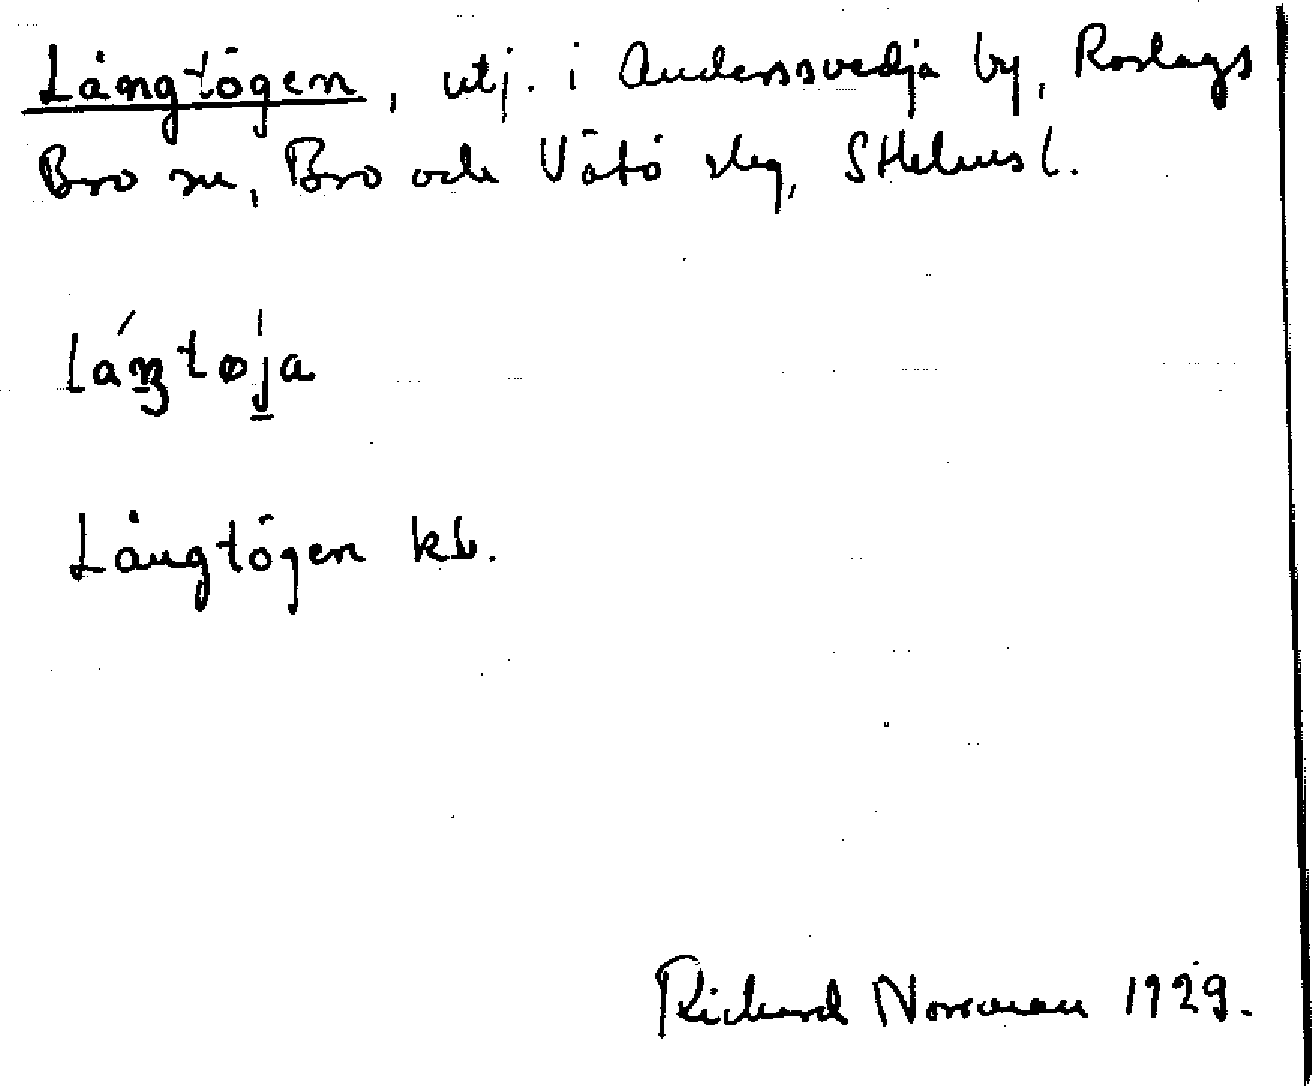 Långtögen, utj. i Anderssvedja by, Roslags
Bro sn, Bro och Vätö slg, Sthlms l.
Långtögen kb.
Richard Norrman 1929.